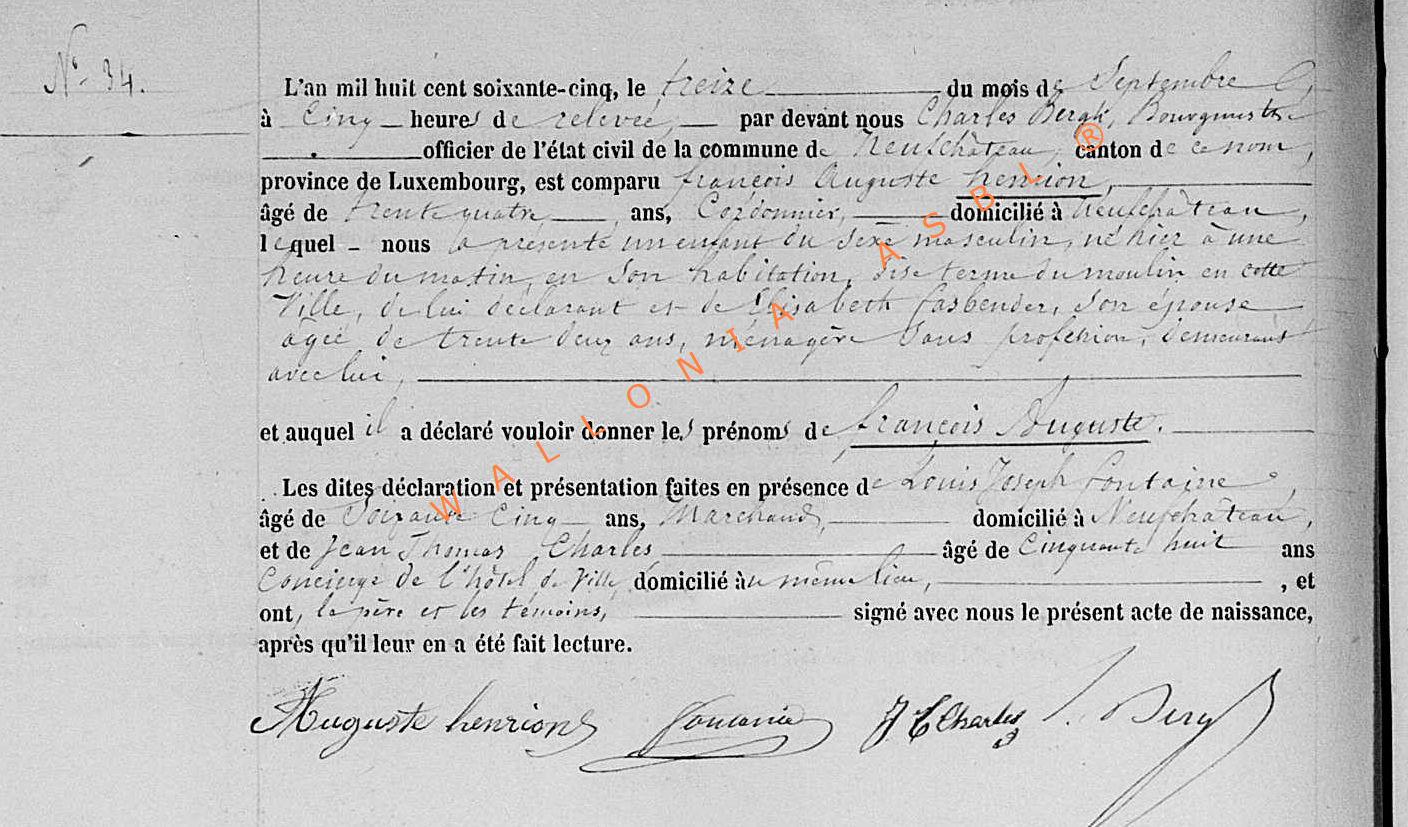 N° 34.
L'an mil huit cent soixante-cinq, le treize du mois de Septembre
à Cinq heures de relevée, par devant nous Charles Bergh, Bourgmestre
officier de l'état civil de la commune de Neufchâteau, canton de ce nom,
province de Luxembourg, est comparu françois Auguste henrion,
âgé de trente quatre ans, Cordonnier, domicilié à Neufchâteau,
lequel nous a présenté un enfant du sexe masculin, né hier à une
heure du matin, en son habitation, sise terme du moulin en cette
Ville, de lui déclarant et de Elisabeth fasbender, son épouse
agée de trente deux ans, ménagère sans profession, demeurant
avec lui,
et auquel il a déclaré vouloir donner les prénoms de françois Auguste.
Les dites déclaration et présentation faites en présence de Louis Joseph fontaine,
âgé de Soixante Cinq ans, Marchand, domicilié à Neufchâteau,
et de Jean Thomas Charles âgé de Cinquante huit ans
Concierge de l'hôtel de Ville, domicilié au même lieu, , et
ont, le père et les témoins, signé avec nous le présent acte de naissance,
après qu'il leur en a été fait lecture.
Auguste henrion fontaine J T Charles Berg
WALLONIA ASBL ®